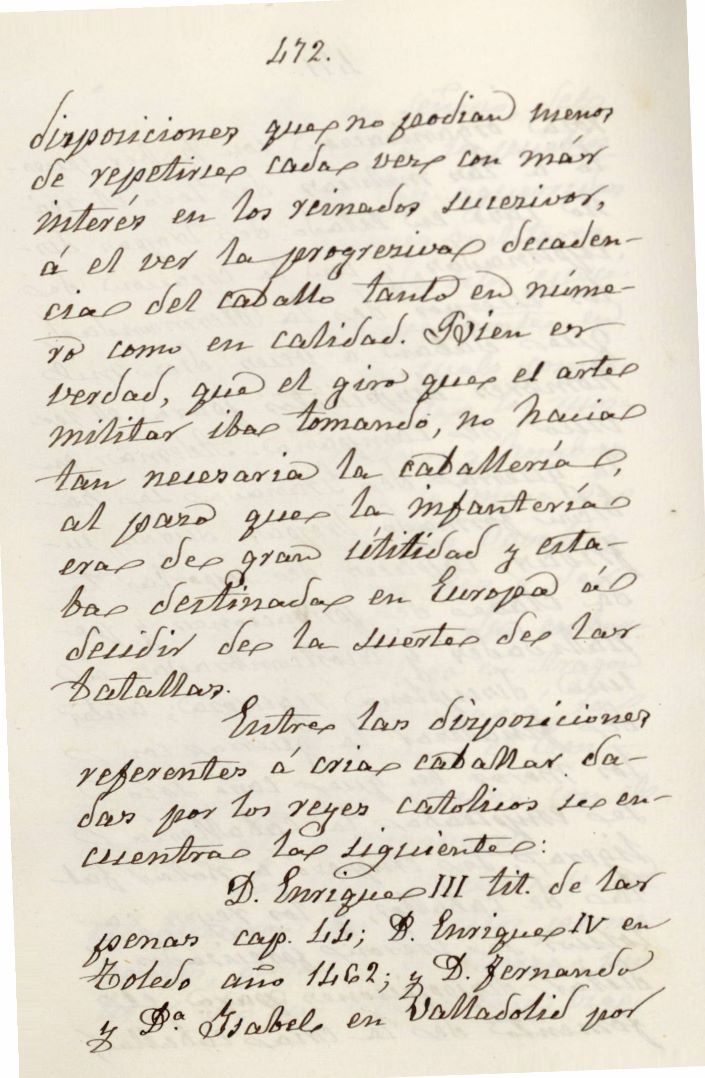 472.
disposiciones que no podian menos
de repetirse cada vez con más
interés en los reinados sucesivos,
á el ver la progresiva decaden-
cia del caballo tanto en núme-
ro como en calidad. Bien es
verdad, que el giro que el arte
militar iba tomando, no hacia
tan necesaria la caballería,
al paso que la infantería
era de gran útilidad y esta-
ba destinada en Europa á
decidir de la suerte de las
batallas.
Entre las disposiciones
referentes á cria caballar da-
das por los reyes catolicos se en-
cuentra la siguiente:
D. Enrique III tit. de las
penas cap. 44; D. Enrique IV en
Toledo año 1462; y D. Fernando
y Dª Isabel en Valladolid por